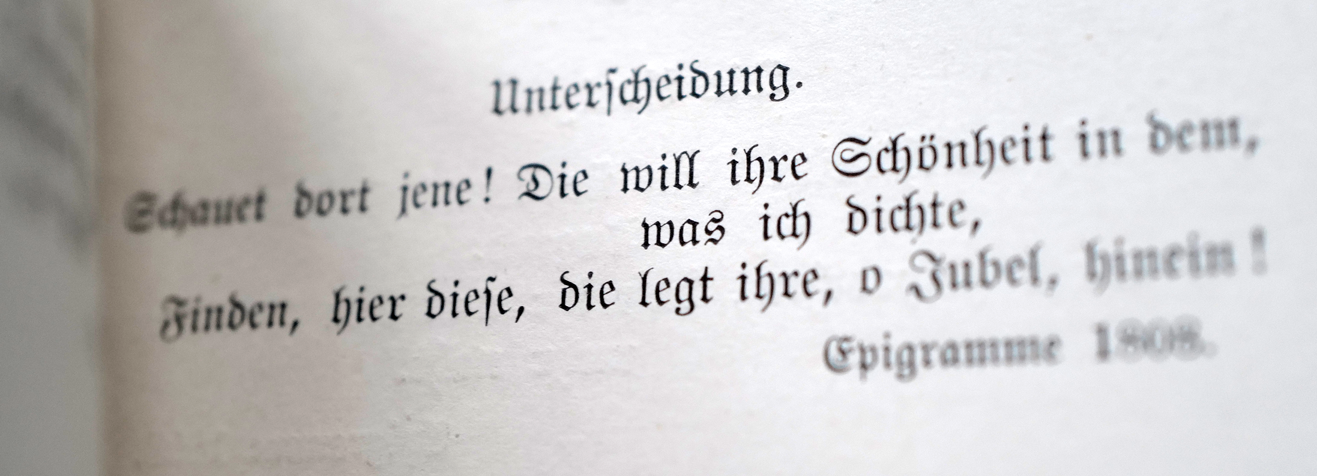 Unterscheidung.
Schauet dort jene! Die will ihre Schönheit in dem,
was ich dichte,
Finden, hier diese, die legt ihre, o Jubel, hinein!
Epigramme 1808.